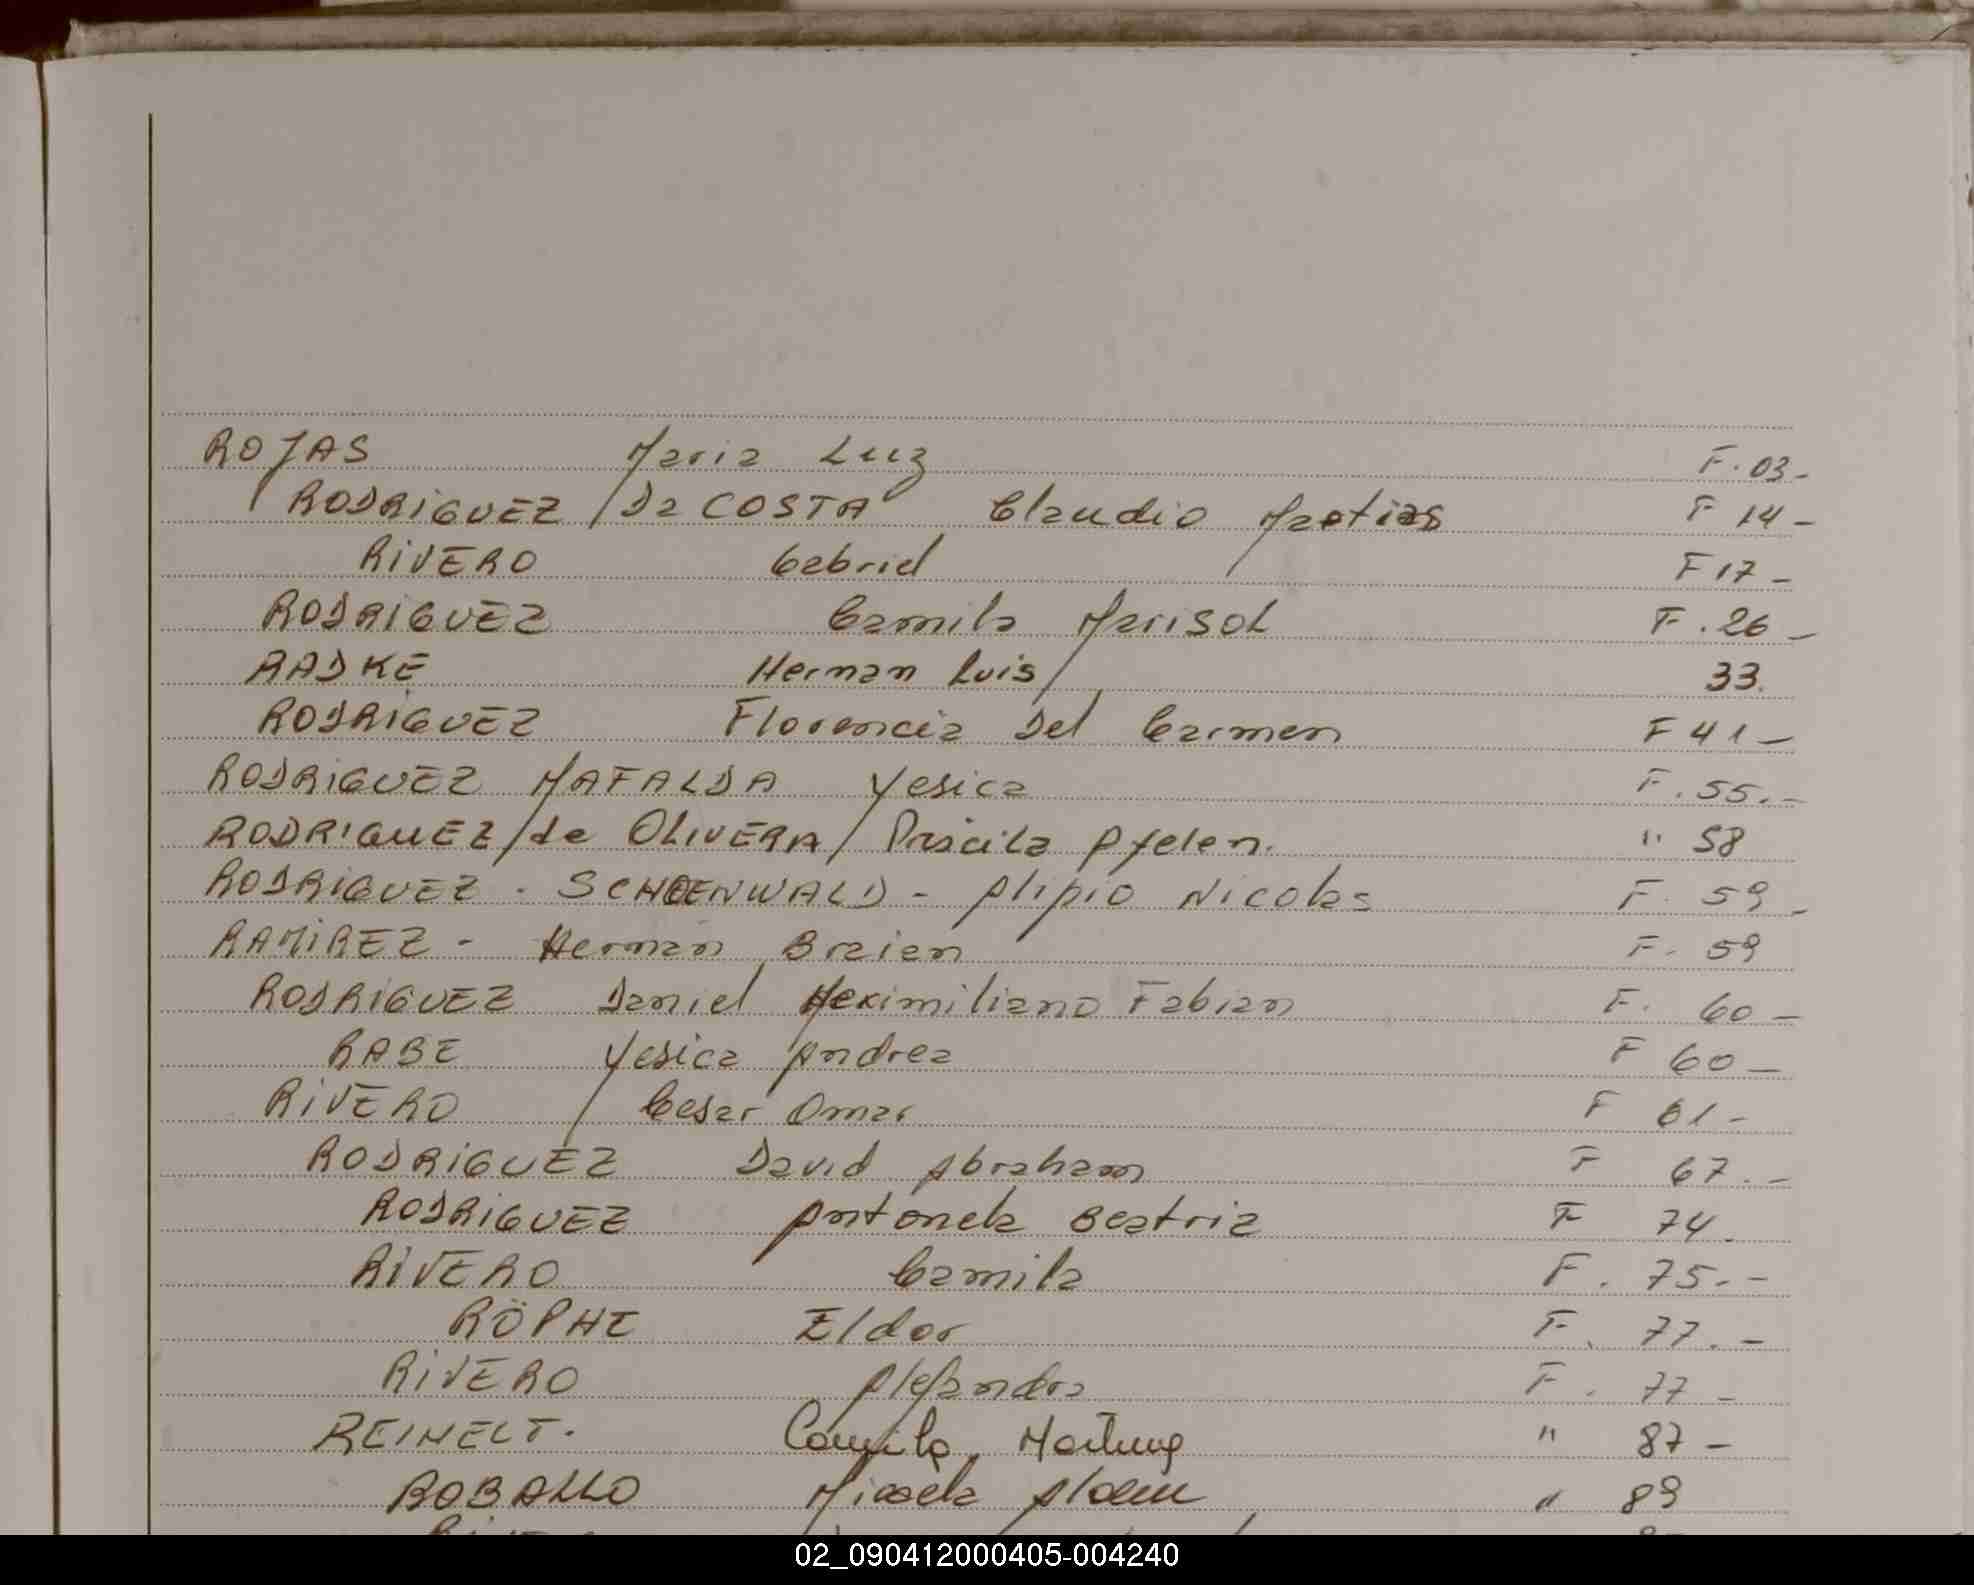 ROJAS Maria Luz F. 03-
RODRIGUEZ / Da COSTA Claudio Matias F 14-
RIVERO Gabriel F 17-
RODRIGUEZ Camila Marisol F. 26-
RADKE Hernan Luis 33.
RODRIGUEZ Florencia Del Carmen F 41-
RODRIGUEZ MAFALDA Yesica F. 55.-
RODRIGUEZ / de OLIVERA / Priscila Aylen. " 58
RODRIGUEZ - SCHOENWALD - Alipio Nicolas F. 59-
RAMIREZ - Hernan Braien F. 59
RODRIGUEZ Daniel Maximiliano Fabian F. 60-
RABE Yesica Andrea F 60-
RIVERO Cesar Omar F 61-
RODRIGUEZ David Abraham F 67.-
RODRIGUEZ Antonela Beatriz F 74.
RIVERO Camila F. 75.-
RÖPHE Eldor F. 77.-
RIVERO Alejandra F. 77-
REINELT. Camila " 87-
ROBALLO Micaela " 89
02_090412000405-004240